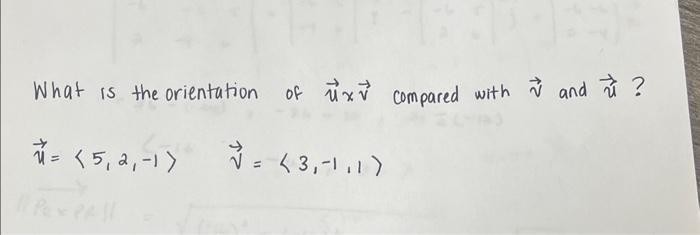 What is the orientation of u⃗ x v⃗ compared with v⃗ and u⃗ ?
u⃗ = ⟨ 5, 2, -1 ⟩ v⃗ = ⟨ 3, -1, 1 ⟩